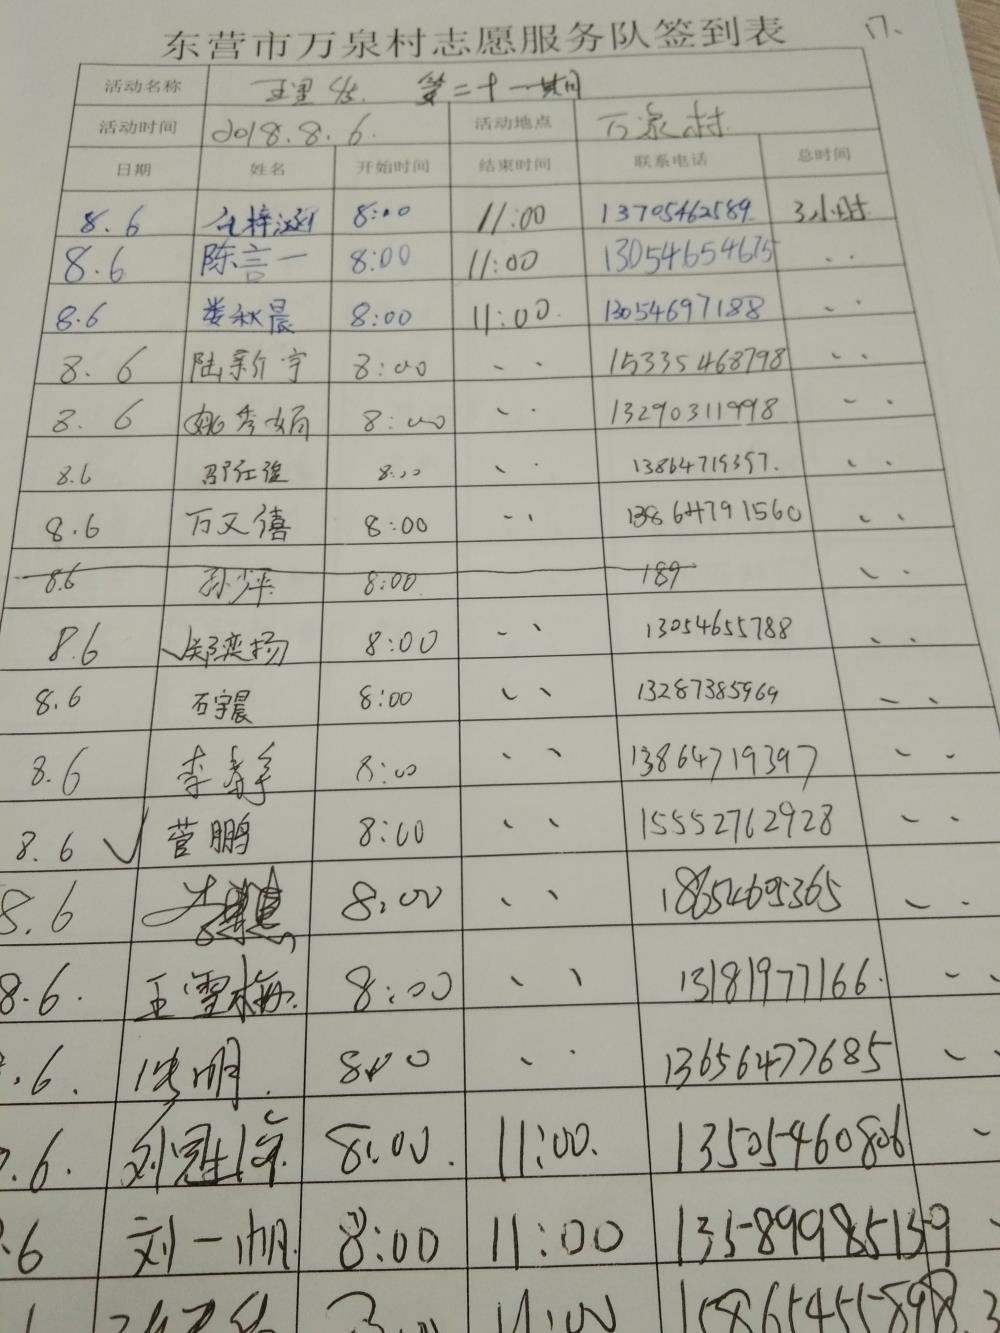 东营市万泉村志愿服务队签到表
17.
活动名称 第二十一期
活动时间 2018.8.6. 活动地点 万泉村
日期 姓名 开始时间 结束时间 联系电话 总时间
8.6 梓涵 8:00 11:00 13705462589 3小时
8.6 陈言一 8:00 11:00 13054654675 、、
8.6 娄秋晨 8:00 11:00. 13054697188 、、
8.6 陆新宇 8:00 、、 15335468798 、、
8.6 姚秀娟 8:00 、、 13290311998 、、
8.6 8:00 、、 13864719397. 、、
8.6 万又禧 8:00 、、 13864791560 、、
8.6 孙少平 8:00 189 、、
8.6 郑奕扬 8:00 、、 13054655788 、、
8.6 石宇晨 8:00 、、 13287385969 、、
8.6 李 8:00 、、 13864719397 、、
8.6 菅鹏 8:00 、、 15552762928 、、
8.6 8:00 、、 18654695365 、、
8.6. 王雪梅. 8:00 、、 13181977166. 、、
.6. 明. 8:00 、、 13656477685 、、
.6. 刘冠 8:00. 11:00. 13505460806 、
.6 刘一帆 8:00 11:00 13589985139 、
11:00 15865455898